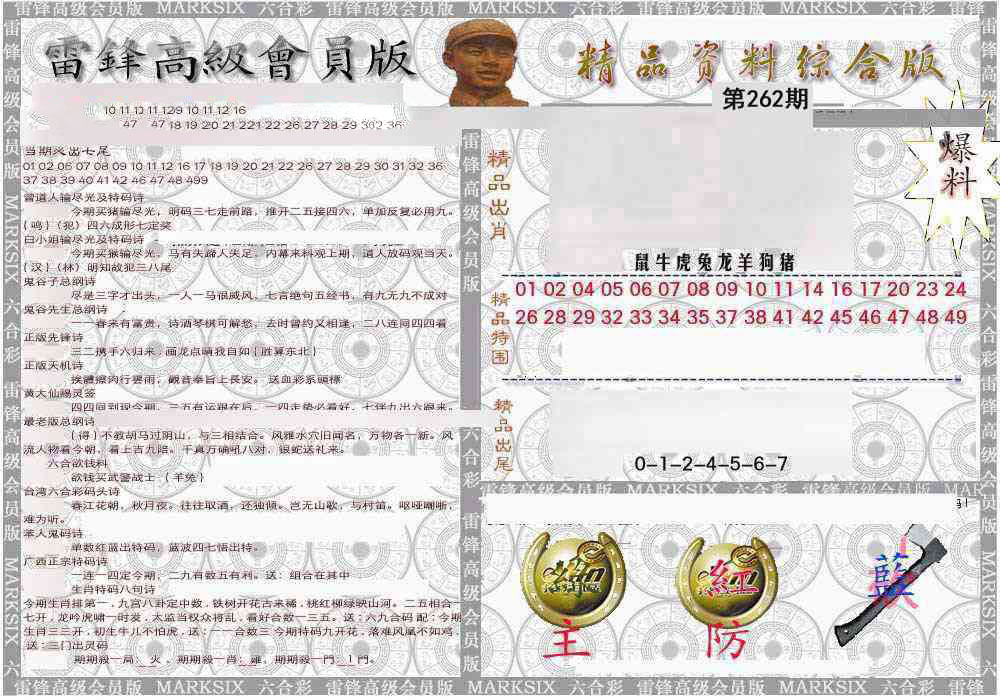 雷锋高级会员版 MARKSIX 六合彩 雷锋高级会员版 MARKSIX 六合彩 雷锋高级会员版 MARKSIX 六合彩 雷锋
雷鋒高級會員版
精品资料综合版
第262期
爆料
10 11 12 11 129 10 11 12 16
47 47 18 19 20 21 221 22 26 27 28 29 302 36
01 02 06 07 08 09 10 11 12 16 17 18 19 20 21 22 26 27 28 29 30 31 32 36
37 38 39 40 41 42 46 47 48 499
曾道人输尽光及特码诗
今期买猪输尽光，明码三七走前路，推开二五接四六，单加反复必用九。
{鸣}{犯}四六成形七定奖
白小姐输尽光及特码诗
今期买猴输尽光，马有失蹄人失足，内幕来料观上期，道人放码观当天。
{汉}{林}明知故犯三八尾
鬼谷子总纲诗
尽是三字才出头，一人一马很威风，七言绝句五经书，有九无九不成对
鬼谷先生总纲诗
一一春来有富贵，诗酒琴棋可解愁，去时曾约又相逢，二八连同四四看
正版先锋诗
三二携手六归来，画龙点睛我自如{胜算东北}
正版天机诗
挨體擦肉行雲雨，觀音奉旨上長安。 送血彩系頭標
黄大仙赐灵签
四四回到现今期，三五有运跟在后，一四走势必看好，七伴九出六跟来。
最老版总纲诗
{得}不教胡马过阴山，与三相结合。风雅水穴旧闻名，万物各一新。风
流人物看今朝，看上吉九陪。千真万确吼八对，银蛇送礼来。
六合欲钱料
欲钱买武警战士 {羊兔}
台湾六合彩码头诗
春江花朝，秋月夜。往往取酒，还独倾。岂无山歌，与村笛。呕哑嘲哳，
难为听。
本人鬼码诗
单数红蓝出特码，蓝波四七悟出特。
广西正宗特码诗
一连一四定今期，二九有数五有利。送：组合在其中
生肖特码八句诗
今期生肖排第一，九宫八卦定中数，铁树开花古来稀，桃红柳绿映山河。二五相合一
七开，龙吟虎啸一时发，太盗当权众将乱，看好合数一三五。送：六九合码 配：今期
生肖三三开，初生牛儿不怕虎，送：一一合数三 今期特码九开花，落难凤凰不如鸡，
送：三门出灵码
期期殺一局：火，期期殺一肖：雞，期期殺一門：1門。
精品出肖
鼠牛虎兔龙羊狗猪
精品特围
01 02 04 05 06 07 08 09 10 11 14 16 17 20 23 24
26 28 29 32 33 34 35 37 38 41 42 45 46 47 48 49
精品出尾
0-1-2-4-5-6-7
紅
藍
主
防
雷锋高级会员版 MARKSIX 六合彩 雷锋高级会员版 MARKSIX 六合彩 雷锋高级会员版 MARKSIX 六合彩 雷锋